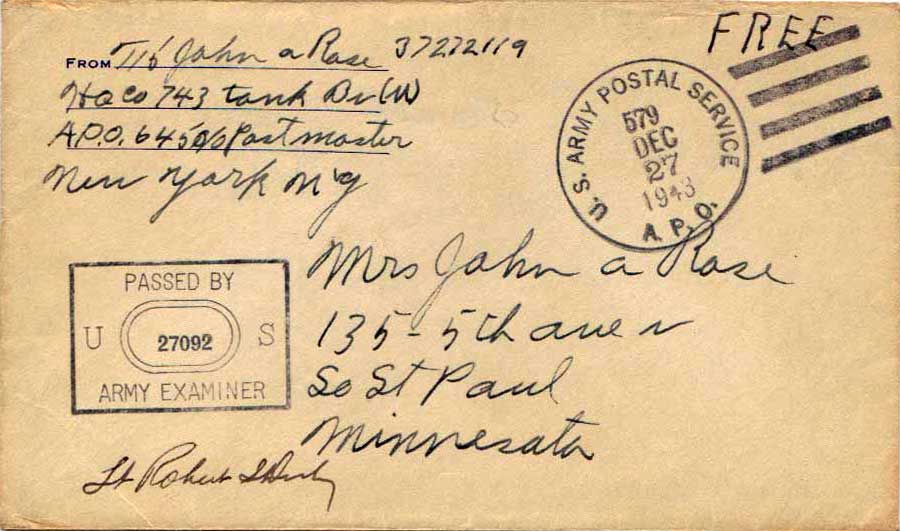 FREE
FROM T/5 John a Rose 37272119
Hq Co 743 tank Bn (M)
A.P.O. 645 c/o Postmaster
New York N.Y
U. S. ARMY POSTAL SERVICE
579
DEC
27
1943
A. P. O.
Mrs John a Rose
135-5th ave n
So St Paul
Minnesota
PASSED BY
U 27092 S
ARMY EXAMINER
Lt Robert